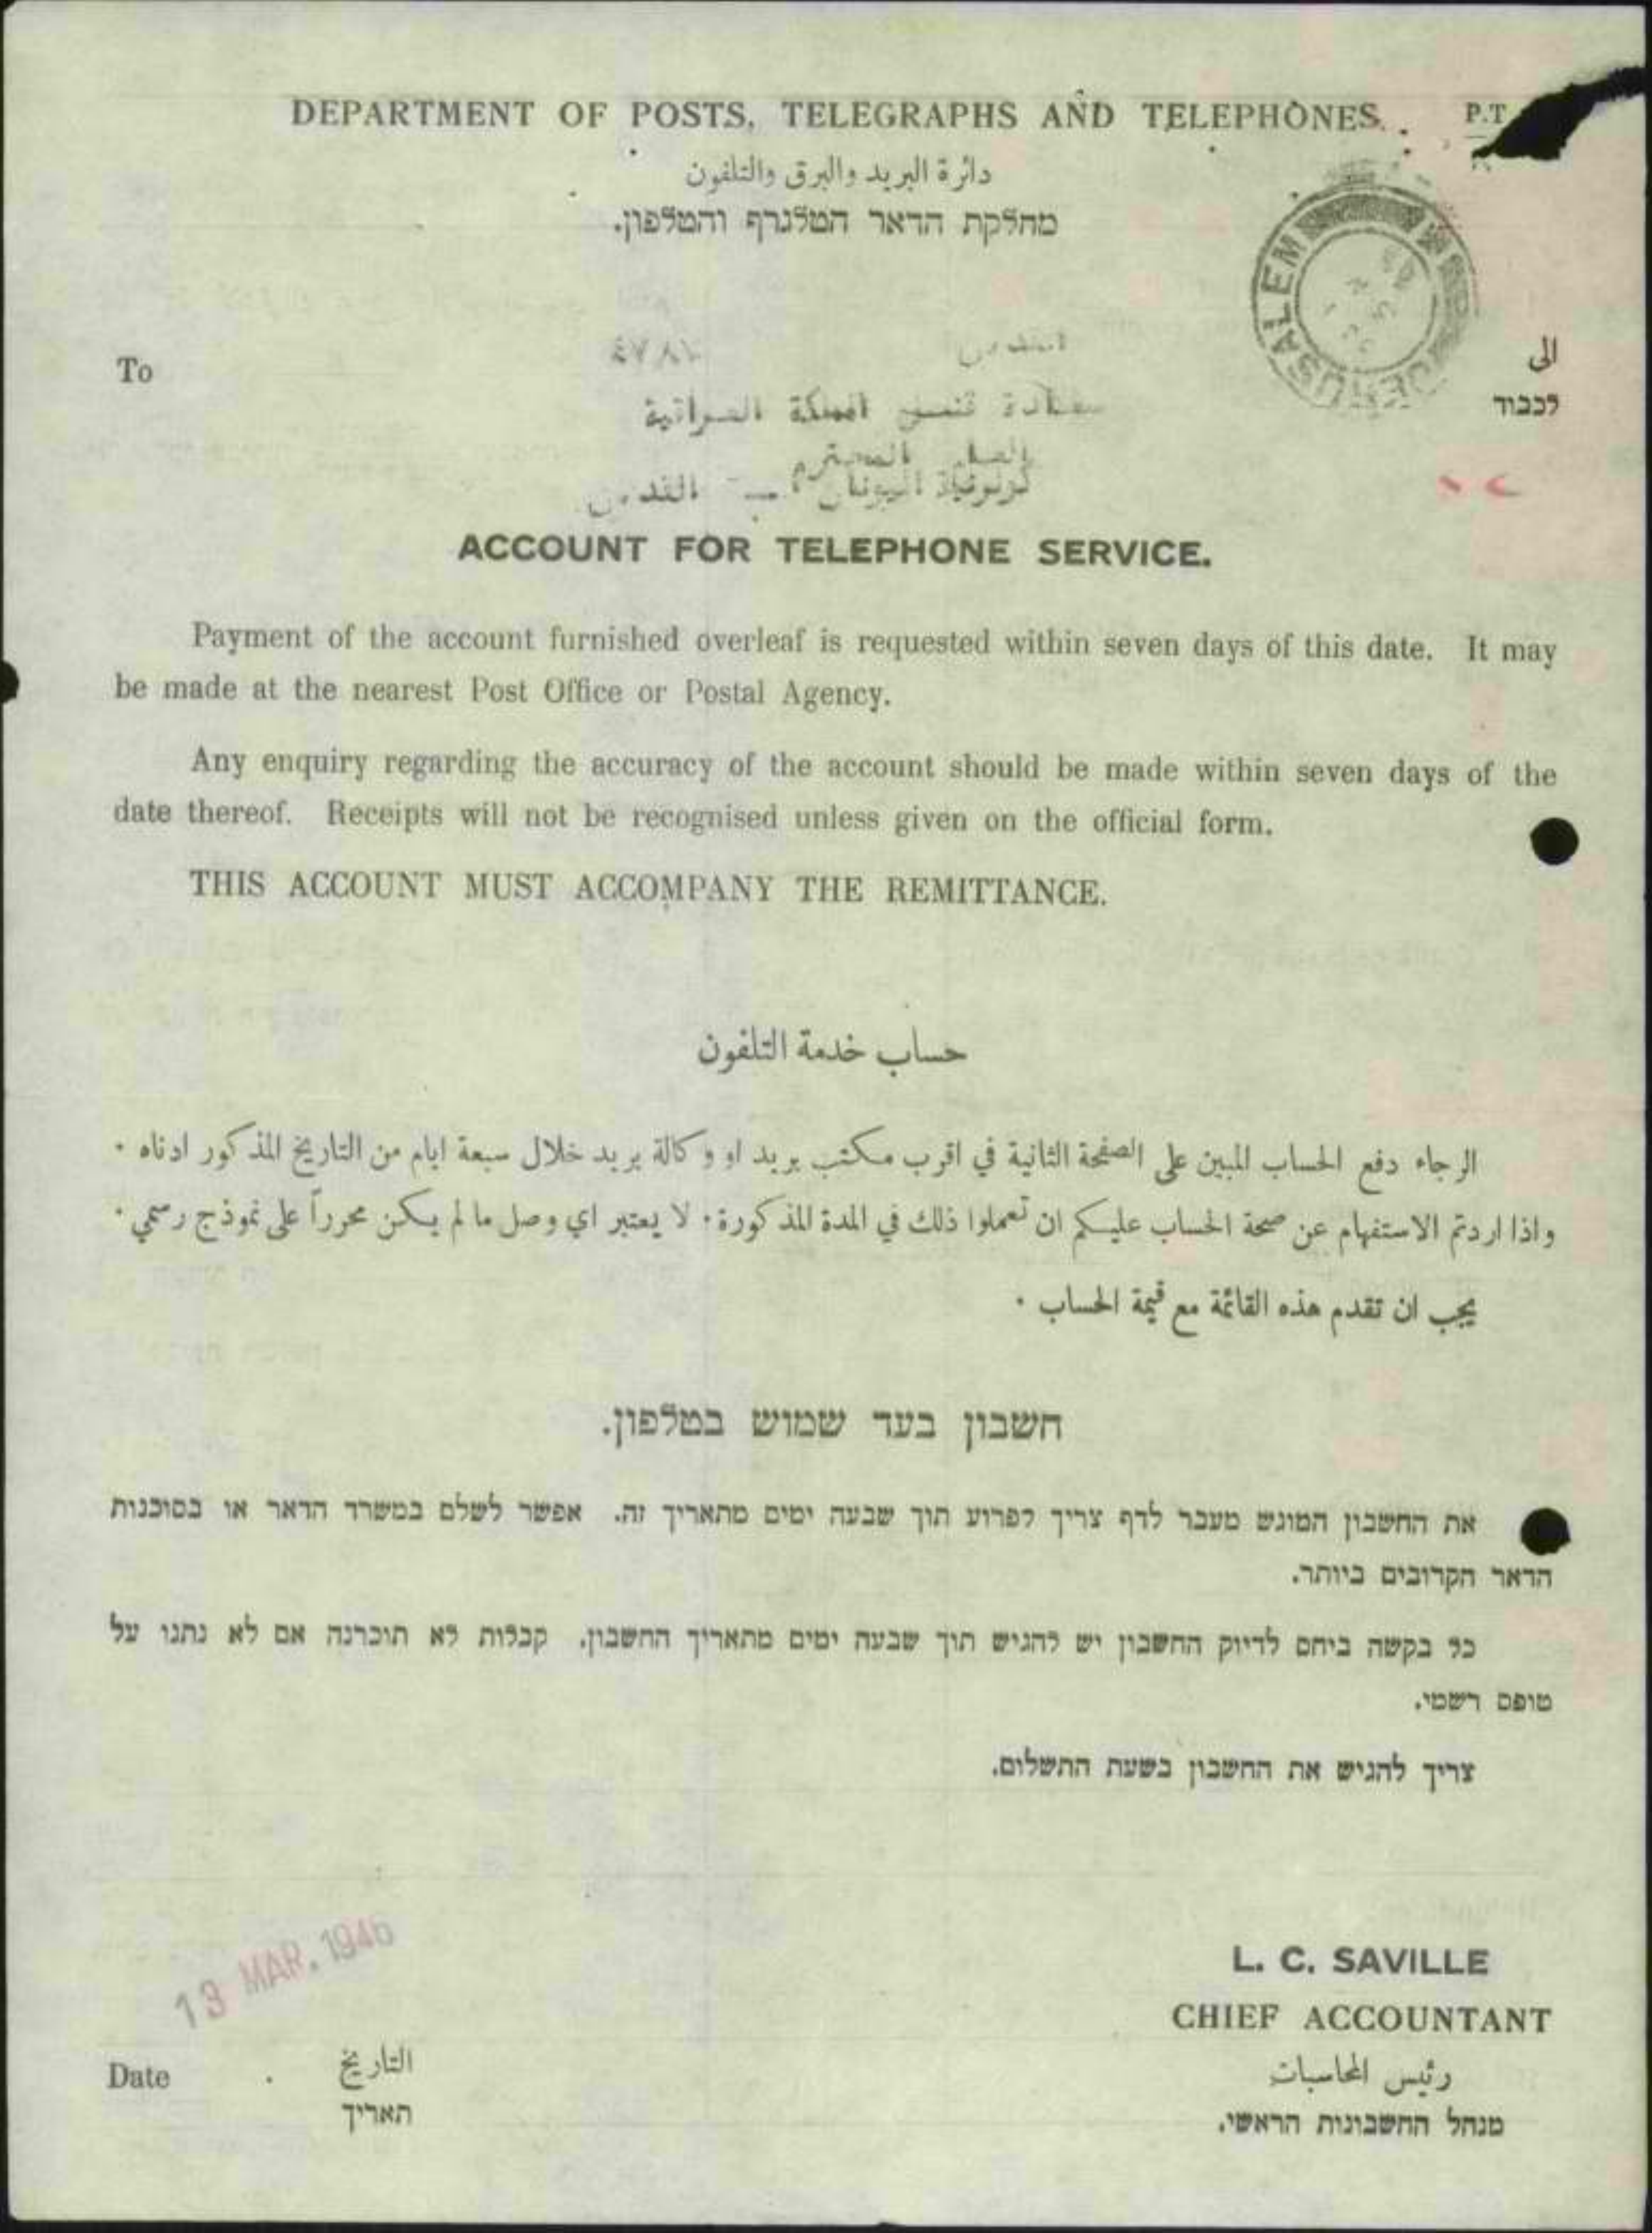 DEPARTMENT OF POSTS, TELEGRAPHS AND TELEPHONES. P.T
دائرة البريد والبرق والتلفون
מחלקת הדאר הטלגרף והטלפון.
JERUSALEM
To
القدس ٤٧٨١
الى
לכבוד
سعادة قنصل المملكة العراقية
المحترم
كولونية اليونان - القدس
ACCOUNT FOR TELEPHONE SERVICE.
Payment of the account furnished overleaf is requested within seven days of this date. It may
be made at the nearest Post Office or Postal Agency.
Any enquiry regarding the accuracy of the account should be made within seven days of the
date thereof. Receipts will not be recognised unless given on the official form.
THIS ACCOUNT MUST ACCOMPANY THE REMITTANCE.
حساب خدمة التلفون
الرجاء دفع الحساب المبين على الصفحة الثانية في اقرب مكتب بريد او وكالة بريد خلال سبعة ايام من التاريخ المذكور ادناه ٠
واذا اردتم الاستفهام عن صحة الحساب عليكم ان تعملوا ذلك في المدة المذكورة ٠ لا يعتبر اي وصل ما لم يكن محرراً على نموذج رسمي ٠
يجب ان تقدم هذه القائمة مع قيمة الحساب ٠
חשבון בעד שמוש בטלפון.
את החשבון המוגש מעבר לדף צריך לפרוע תוך שבעה ימים מתאריך זה. אפשר לשלם במשרד הדאר או בסוכנות
הדאר הקרובים ביותר.
כל בקשה ביחס לדיוק החשבון יש להגיש תוך שבעה ימים מתאריך החשבון. קבלות לא תוכרנה אם לא נתנו על
טופס רשמי.
צריך להגיש את החשבון בשעת התשלום.
13 MAR. 1946
L. C. SAVILLE
CHIEF ACCOUNTANT
رئيس المحاسبات
מנהל החשבונות הראשי.
Date
التاريخ
תאריך